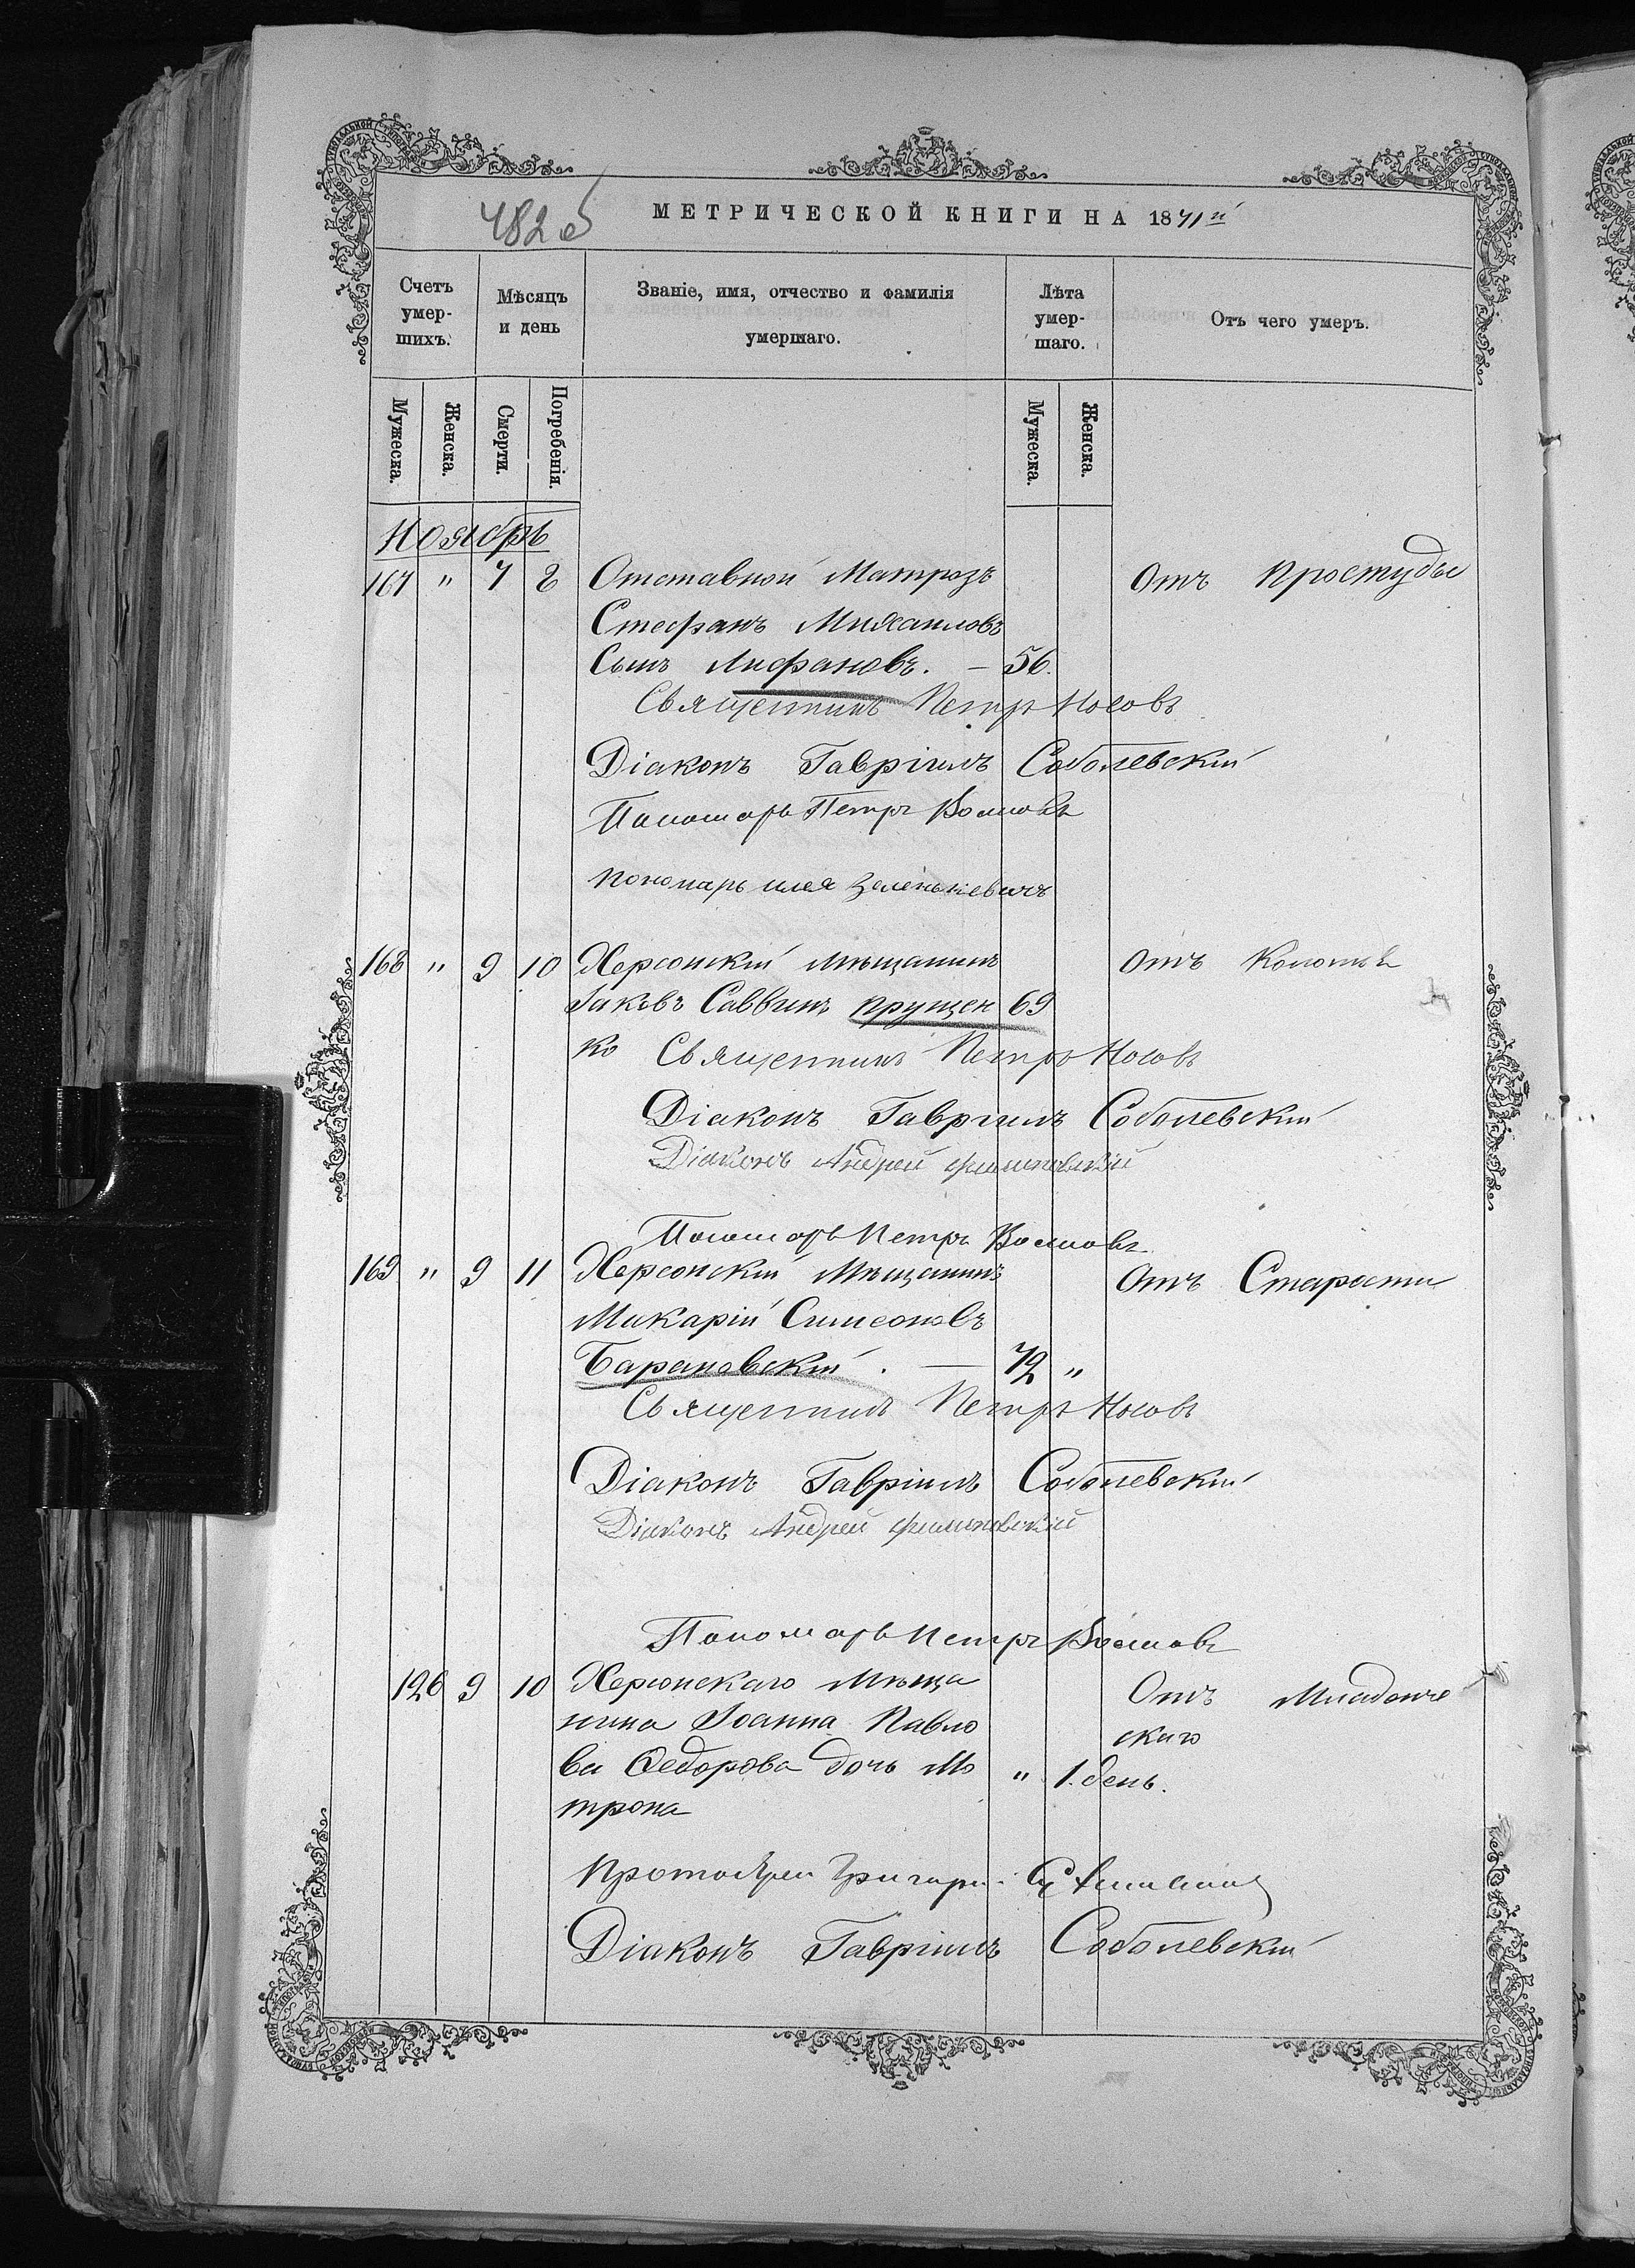 482 об
МЕТРИЧЕСКОЙ КНИГИ НА 1871й
Счетъ умер-шихъ.
Мѣсяцъ и день
Званіе, имя, отчество и фамилія умершаго.
Лѣта умер-шаго.
Отъ чего умеръ.
Мужеска. Женска. Смерти. Погребенія. Мужеска. Женска.
Ноябрь
167 " 7 8 Отставной Матрозъ Отъ простуды
Стефанъ Михаиловъ
Сынъ Лифановъ. — 56.
Священникъ Петръ Носовъ
Діаконъ Гавріилъ Соболевскій
Пономарь Петръ
пономарь Илья Зеленькевичъ
168 " 9 10 Херсонскій мѣщанинъ Отъ
Іаковъ Саввинъ прущен 69
ко Священникъ Петръ Носовъ
Діаконъ Гавріилъ Соболевскій
Діаконъ Андрей
Пономарь Петръ
169 " 9 11 Херсонскій Мѣщанинъ Отъ Старости
Макарій Симеоновъ
Барановскій. — 72 "
Священникъ Петръ Носовъ
Діаконъ Гавріилъ Соболевскій
Діаконъ Андрей
Пономарь Петръ
126 9 10 Херсонскаго мѣща Отъ Младенче
нина Іоанна Павло скаго
ва Ѳедорова дочь Ма " 1. день.
трона
Протоіерей Григорій
Діаконъ Гавріилъ Соболевскій